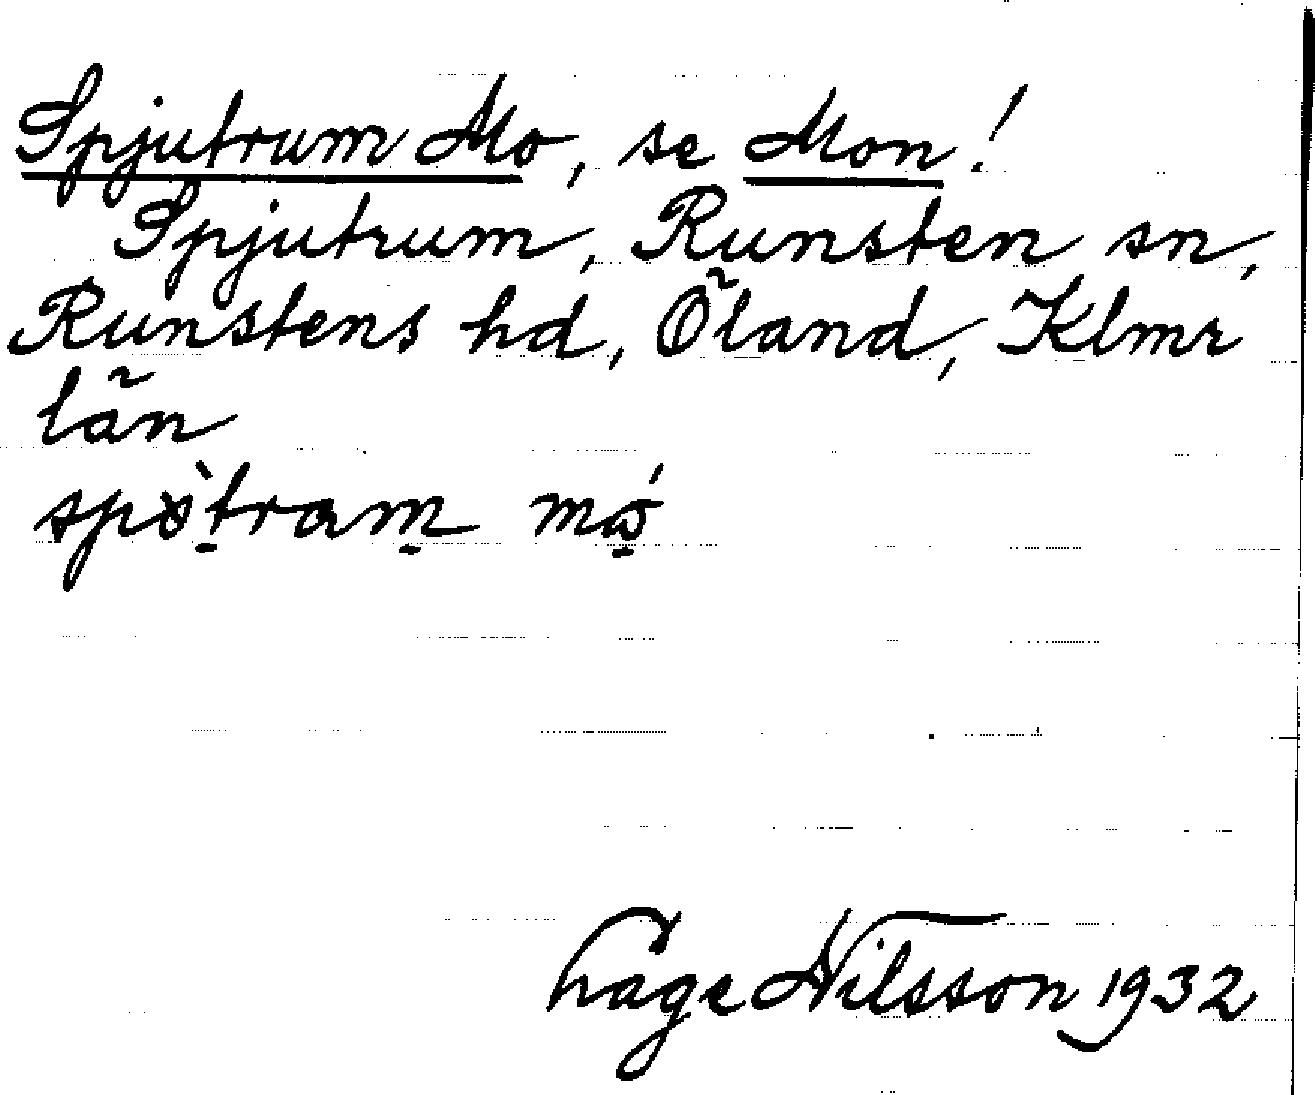 Spjutrum Mo, se Mon!
Spjutrum, Runsten sn,
Runstens hd, Öland, Klmr
län
Hage Nilsson 1932